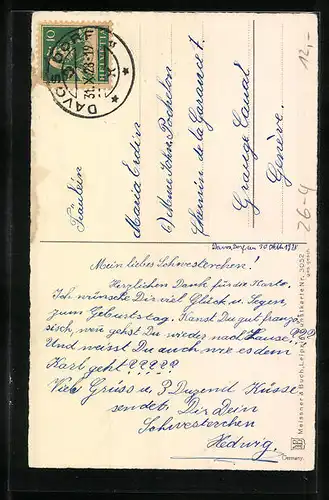 10
HELVETIA
DAVOS DORF
31.X.28-19
12,-
26-4
Fräulein
Maria Erdin
Chemin de la Garance 7.
Grange Canal
Genève.
Davos Dorf, den 30 Okt. 1928
Mein liebes Schwesterchen!
Herzlichen Dank für die Karte.
Ich wünsche Dir viel Glück u. Segen,
zum Geburtstag. Kanst Du gut franzö
sisch, wen gehst Du wieder nach Hause!???
Und weisst Du auch wie es dem
Karl geht?????
Viele Grüss u. 3 Duzend Küsse
sendet Dir Dein
Schwesterchen
Hedwig.
Meissner & Buch, Leipzig Künstlerkarte Nr. 3032
Germany.